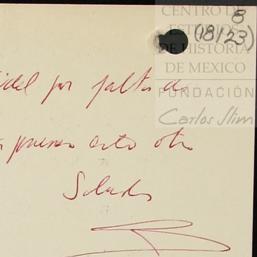 CENTRO DE
ESTUDIOS
DE HISTORIA
DE MEXICO
FUNDACIÓN
Carlos Slim
8
(18/23)
por falta de
esto otro
Saludos